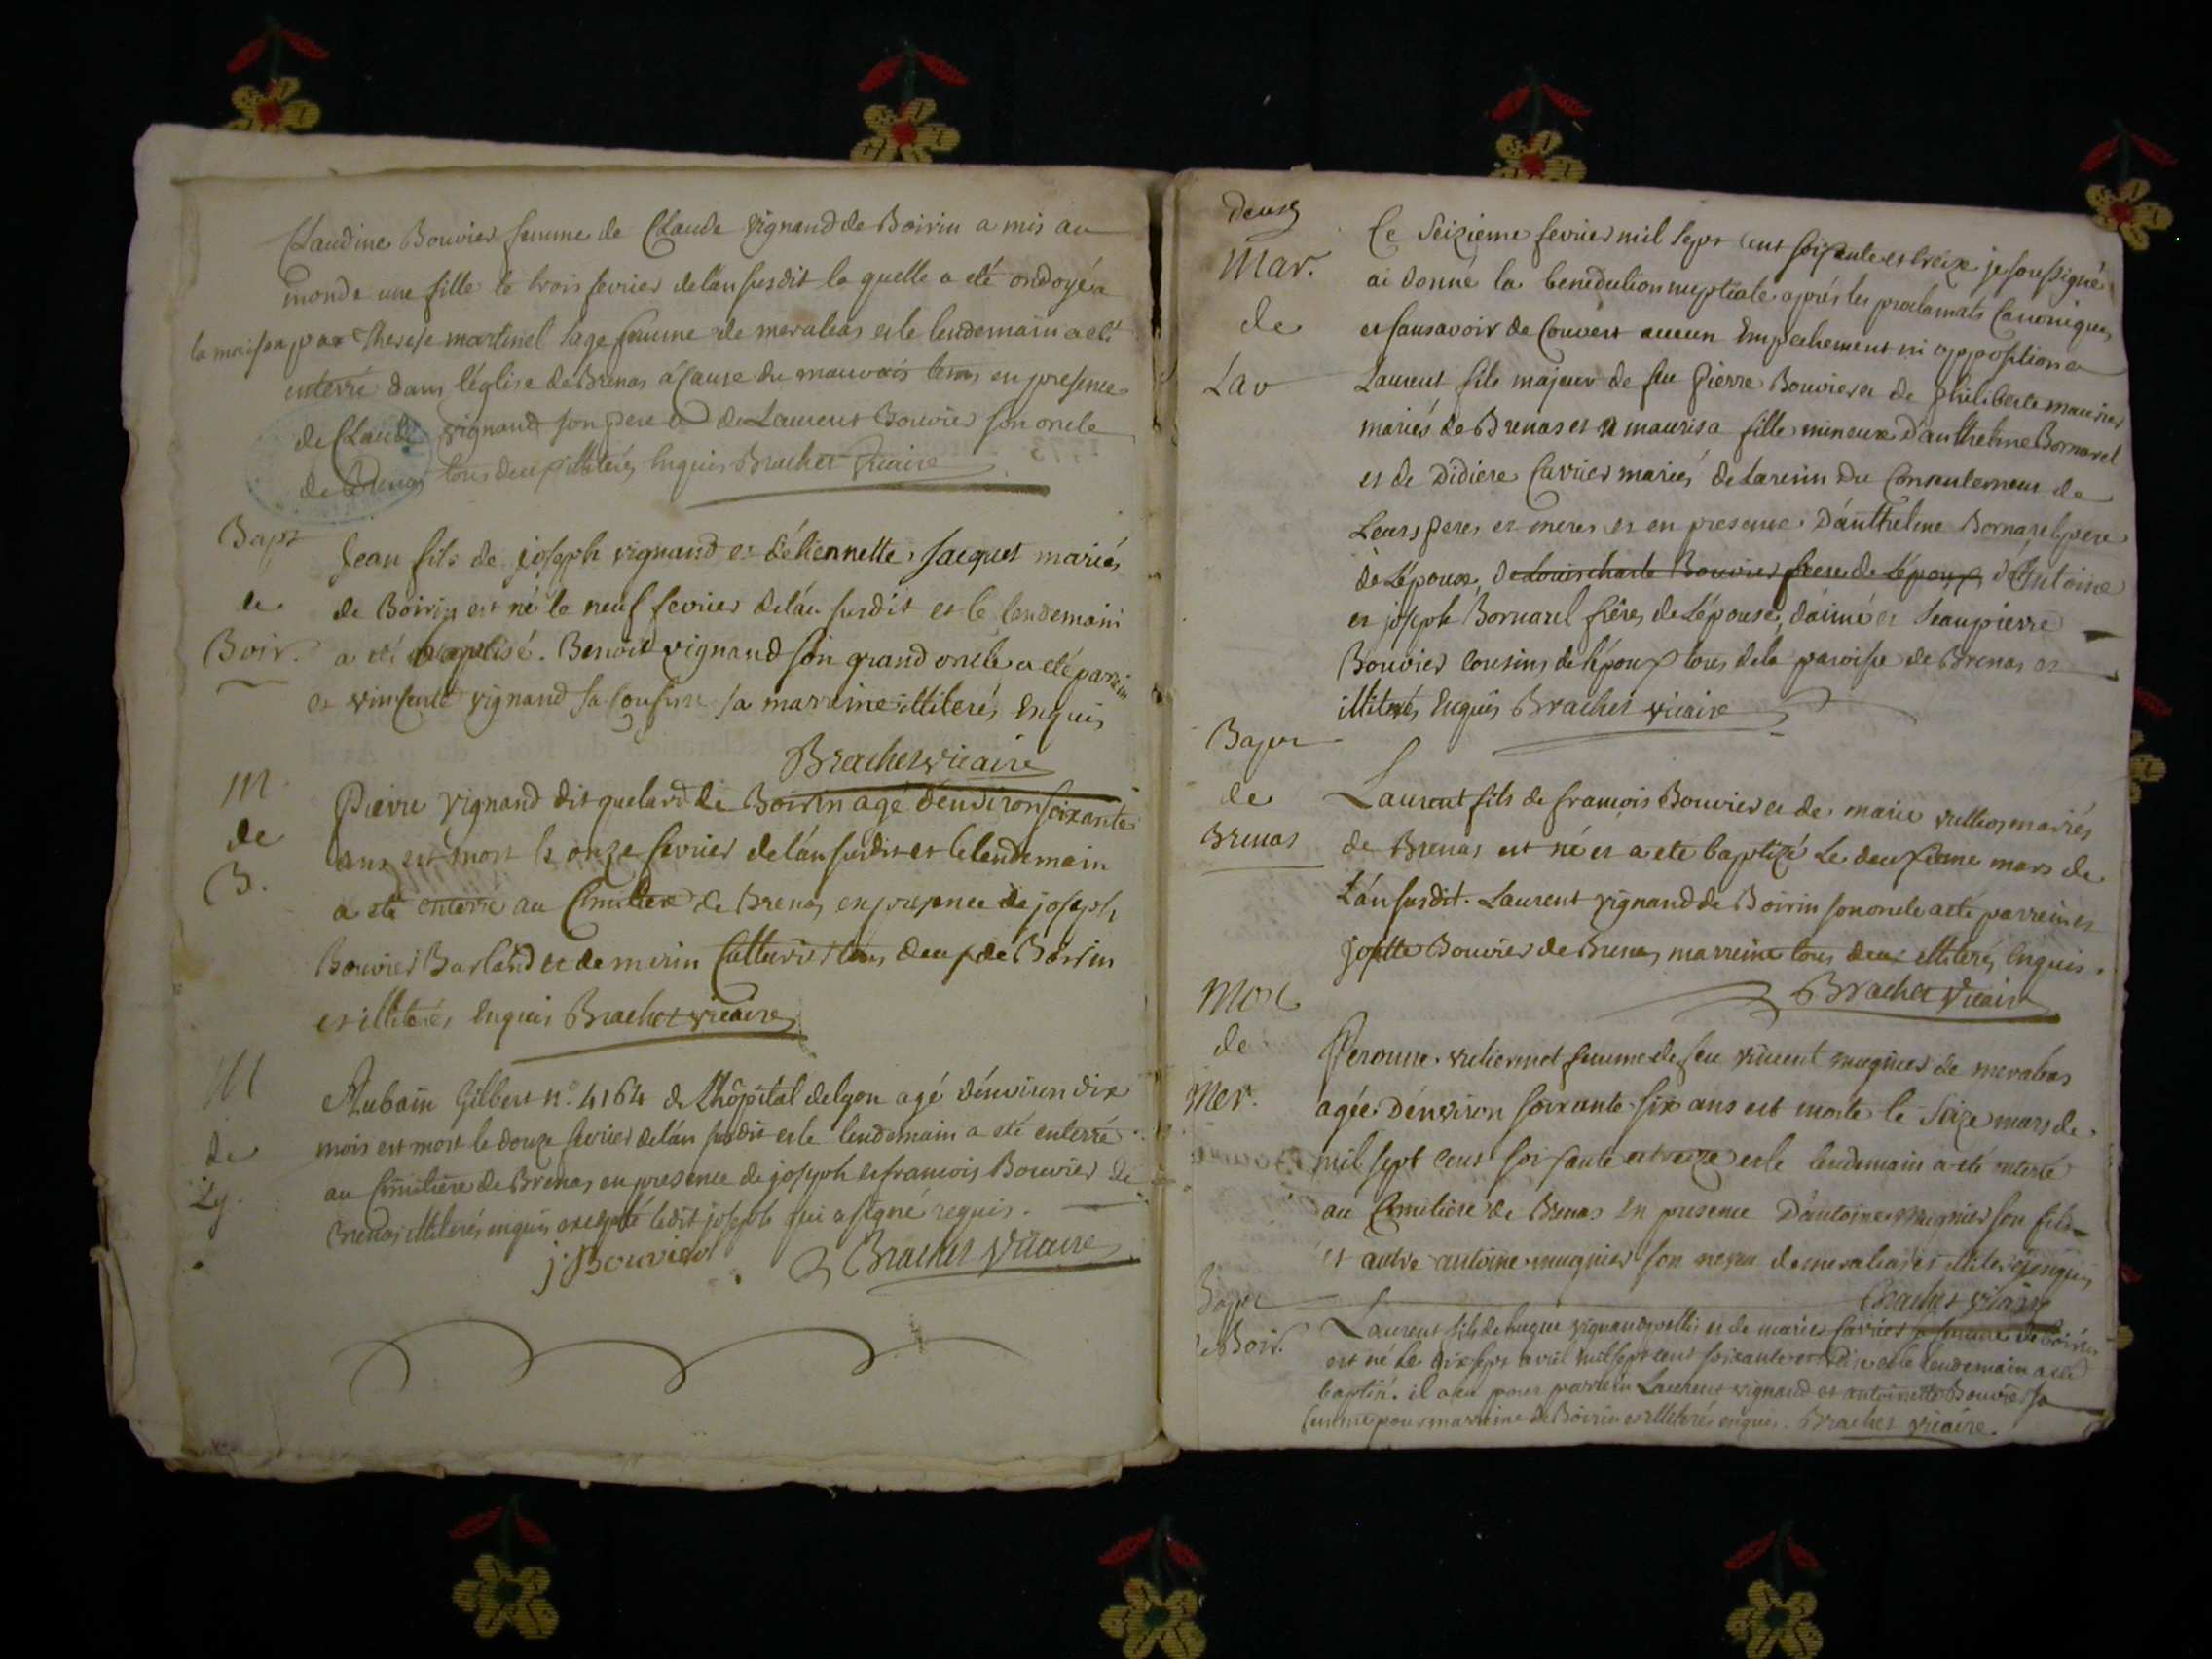 Claudine Bouvier femme de Claude vignand de Boirin a mis au
monde une fille le trois fevrier de l'an susdit la quelle a eté ondoyé a
la maison par Therese martinel sage femme de meraleas et le lendemain a eté
enterré dans l'église de Brenas à cause du mauvais tems en presence
de Claude vignand son pere et de Laurent Bouvier son oncle
de Brenas tous deux illiterés enquis Brachet vicaire
Bapt
de
Boir.
Jean fils de joseph vignand et d'étiennette Jacquet mariés
de Boirin est né le neuf fevrier de l'an susdit et le lendemain
a eté baptisé. Benoit vignand son grand oncle a eté parrain
et vincente vignand sa cousine sa marreine illiterés enquis
Brachet vicaire
M
de
B.
Pierre vignand dit quelard de Boirin agé d'environ soixante
ans est mort le onze fevrier de l'an susdit et le lendemain
a eté enterré au Cimitiere de Brenas en presence de joseph
Bouvier Barland et de mirin tous deux de Boirin
et illiterés enquis Brachet vicaire
M
de
Ly.
Aubain Gilbert n.° 4164 de L'hôpital de lyon agé d'environ dix
mois est mort le douze fevrier de l'an susdit et le lendemain a eté enterré
au Cimitiere de Brenas en presence de joseph et francois Bouvier de
Brenas illiterés enquis excepté ledit joseph qui a signé requis.
j Bouvier Brachet vicaire
deux
Mar.
de
Lav
Le seizieme fevrier mil sept cent soixante et treize je soussigné
ai donné la benediction nuptiale aprés les proclamats Canoniques
et sans avoir decouvert aucun empechement ni opposition a
Laurent fils majeur de feu Pierre Bouvier et de philiberte
mariés de Brenas et a maurisa fille mineure d'anthelme Bornarel
et de Didiere Carrier mariés de du consentement de
Leurs peres et meres et en presence d'anthelme Bornarel pere
de L'épouse, de Louis charle Bouvier frere de L'époux d'Antoine
et joseph Bornarel frères de L'épouse, d'aimé et Jeanpierre
Bouvier cousins de l'époux tous de la paroisse de Brenas et
illiterés enquis Brachet vicaire
Bapt
de
Brenas
Laurent fils de francois Bouvier et de marie mariés
de Brenas est né et a eté baptizé Le deuxieme mars de
L'an susdit. Laurent vignand de Boirin son oncle a eté parrein et
Bouvier de Brenas marreine tous deux illiterés enquis.
Brachet vicaire
Mort
de
Mer.
Peronne femme de feu vincent mugnier de meraleas
agée d'environ soixante six ans est morte le seize mars de
mil sept cent soixante et treize et le lendemain a eté enterré
au Cimitiere de Brenas en presence d'antoine mugnier son fils
et autre antoine mugnier son neveu de meraleas et illiterés enquis
Brachet vicaire
Bapt
de Boir.
Laurent fils de hugue vignand et de marie Carrier sa femme de Boirin
est né Le dix sept avril mil sept cent soixante et treize et le lendemain a eté
baptisé. il a eu pour parrein Laurent vignand et antoinette Bouvier sa
femme pour marraine de Boirin et illiterés enquis. Brachet vicaire